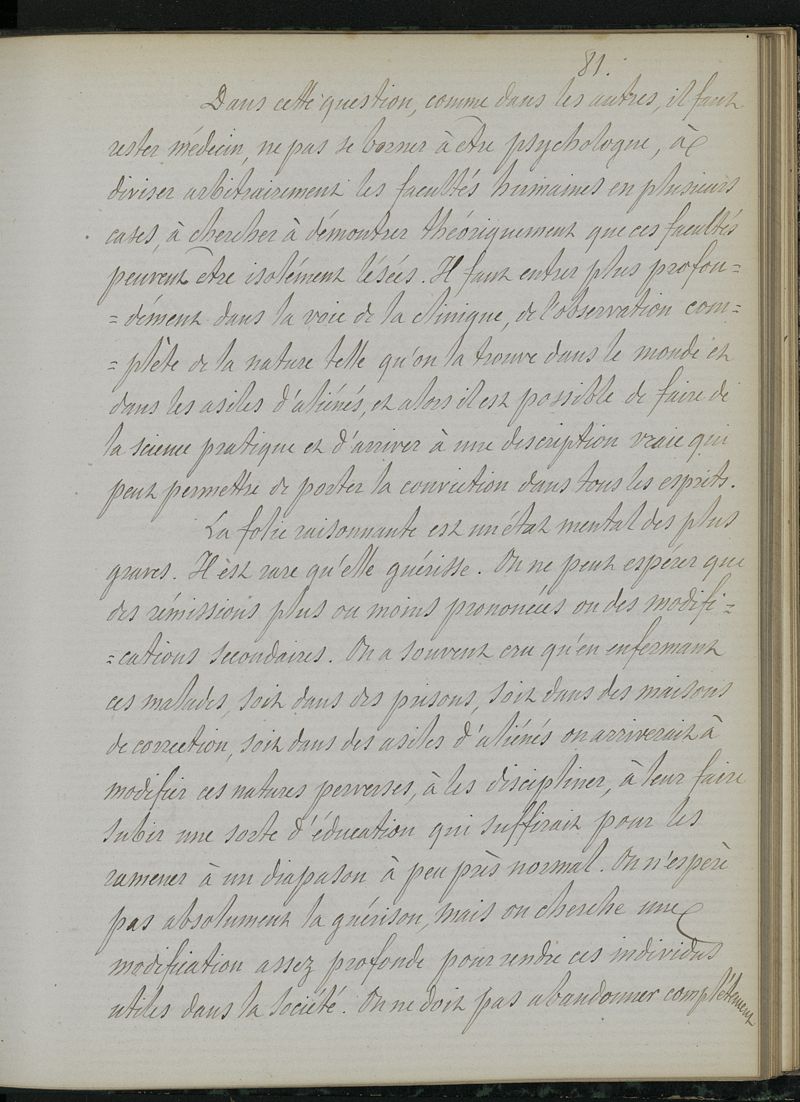 81.
Dans cette question, comme dans les autres, il faut
rester médecin, ne pas se borner à être psychologue, à
diviser arbitrairement les facultés humaines en plusieurs
cases, à chercher à démontrer théoriquement que ces facultés
peuvent être isolément lésées. Il faut entrer plus profon=
=dément dans la voie de la clinique, de l'observation com=
=plète de la nature telle qu'on la trouve dans le monde et
dans les asiles d'aliénés, et alors il est possible de faire de
la science pratique et d'arriver à une description vraie qui
peut permettre de porter la conviction dans tous les esprits.
La folie raisonnante est un état mental des plus
graves. Il est rare qu'elle guérisse. On ne peut espérer que
des rémissions plus ou moins prononcées ou des modifi=
=cations secondaires. On a souvent cru qu'en enfermant
ces malades, soit dans des prisons, soit dans des maisons
de correction, soit dans des asiles d'aliénés on arriverait à
modifier ces natures perverses, à les discipliner, à leur faire
subir une sorte d'éducation qui suffirait pour les
ramener à un diapason à peu près normal. On n'espère
pas absolument la guérison, mais on cherche une
modification assez profonde pour rendre ces individus
utiles dans la société. On ne doit pas abandonner complètement